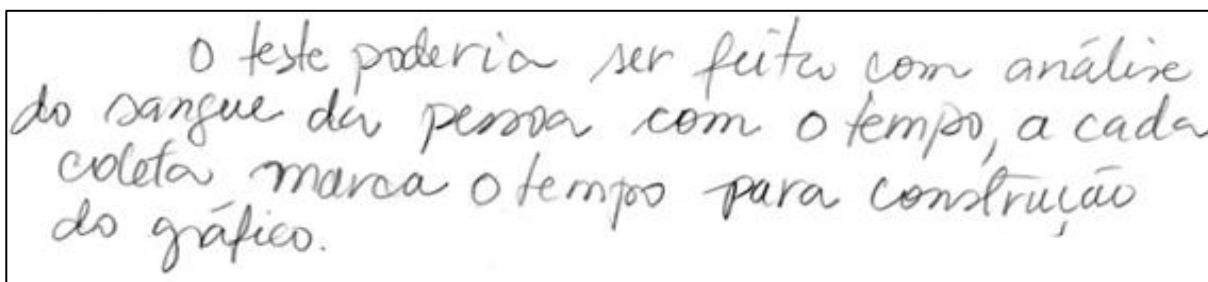 O teste poderia ser feito com análise
do sangue da pessoa com o tempo, a cada
coleta marca o tempo para construção
do gráfico.